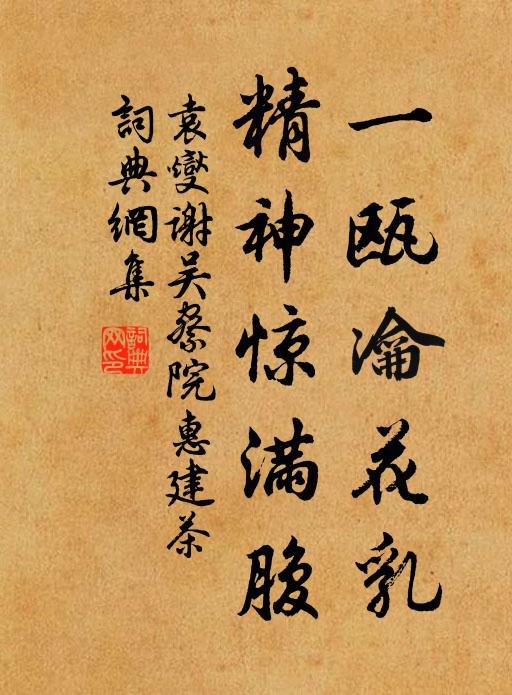 一瓯瀹花乳
精神惊满腹
袁燮谢吴察院惠建茶
词典網集
詞典網印